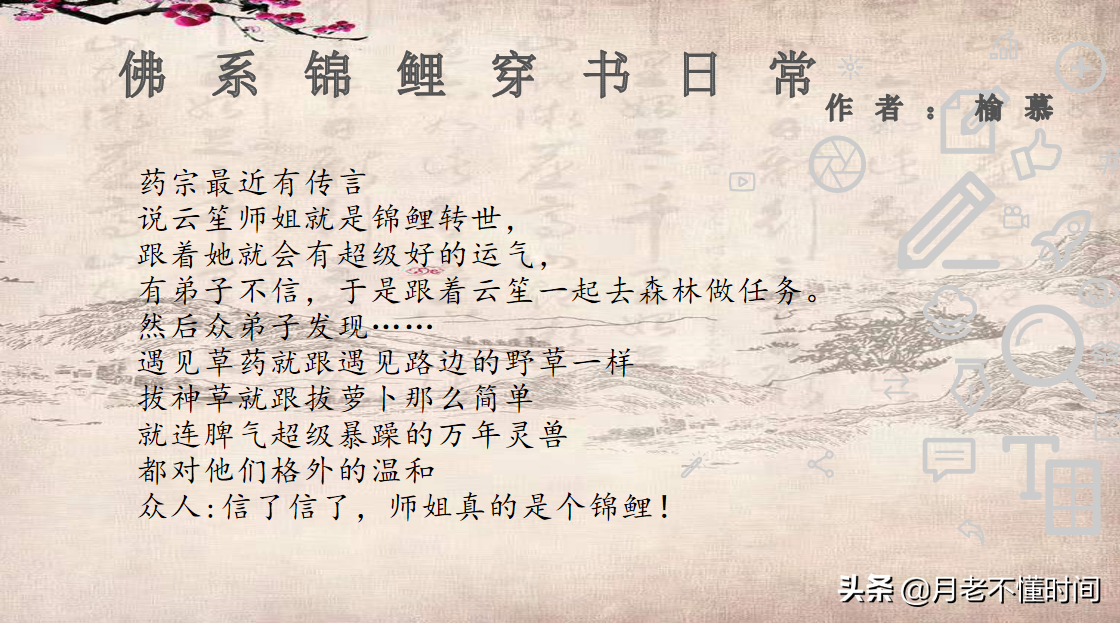 佛系锦鲤穿书日常
作者：榆慕
药宗最近有传言
说云笙师姐就是锦鲤转世，
跟着她就会有超级好的运气，
有弟子不信，于是跟着云笙一起去森林做任务。
然后众弟子发现……
遇见草药就跟遇见路边的野草一样
拔神草就跟拔萝卜那么简单
就连脾气超级暴躁的万年灵兽
都对他们格外的温和
众人:信了信了，师姐真的是个锦鲤！
头条 @月老不懂时间